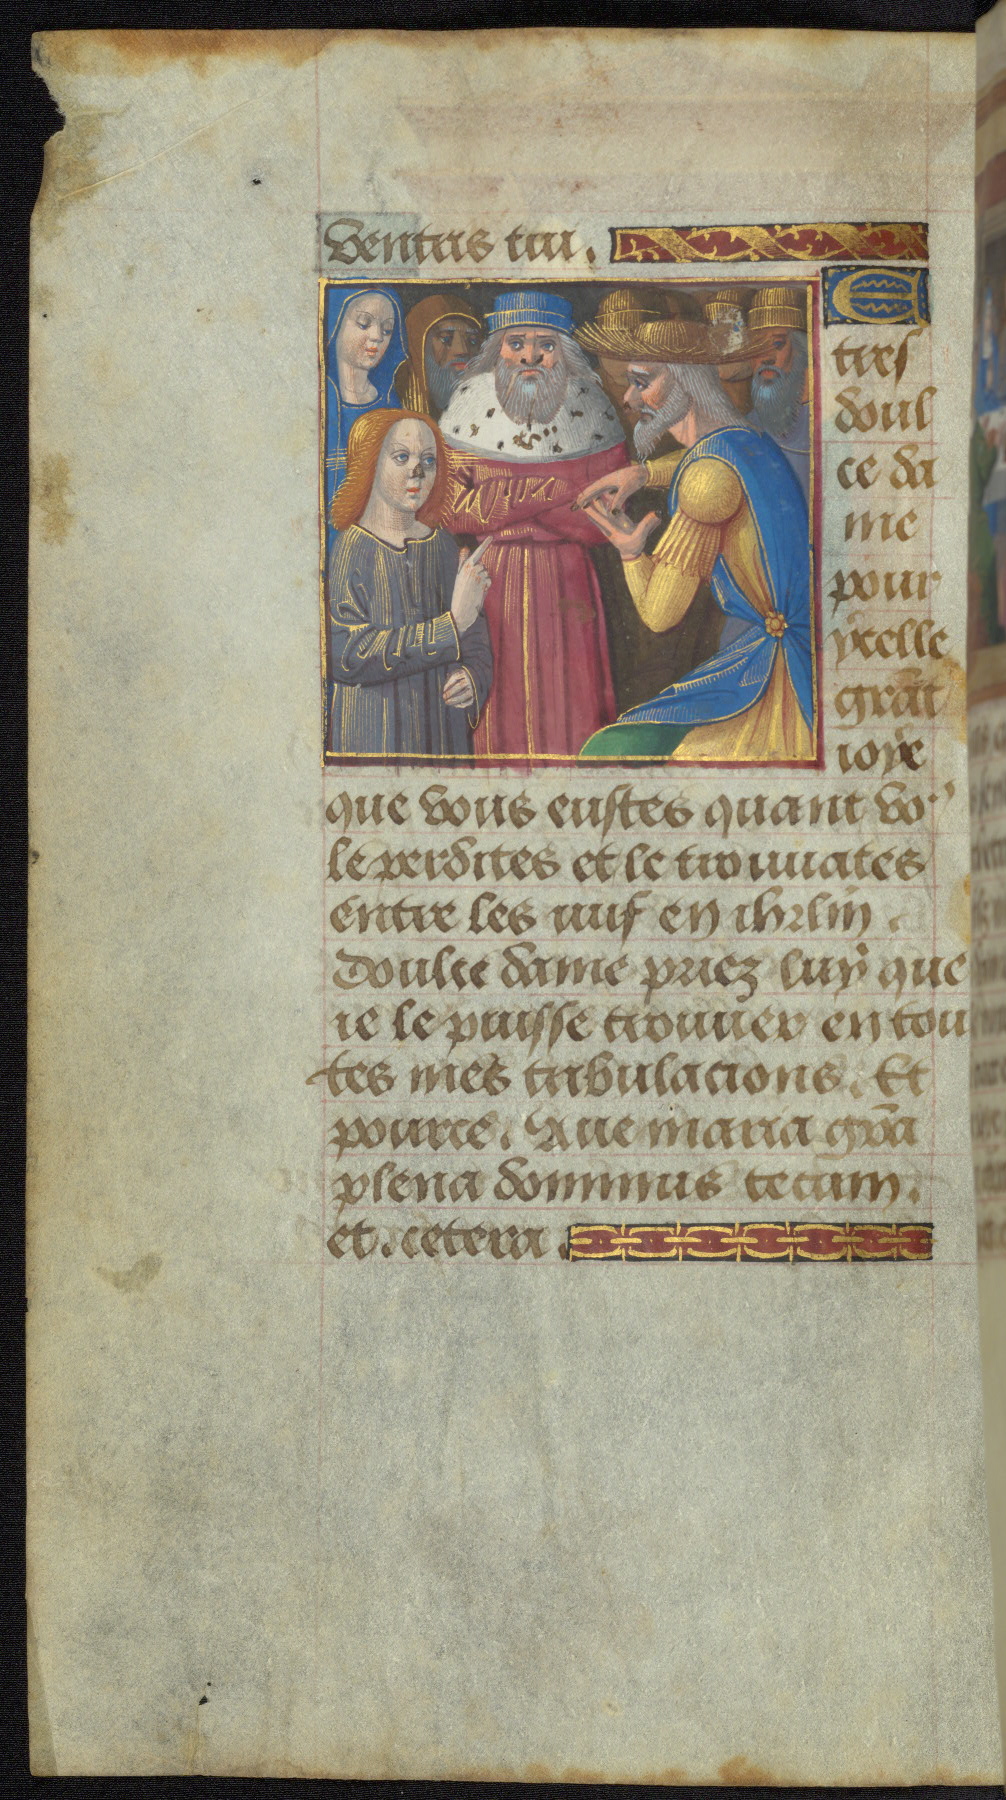 Ventris tui.
E
tres
doul
ce da
me
pour
ycelle
grãt
ioye
que vous eustes quant vo⁹
le perdites et le trouuates
entre les iuif en ihrlm̃.
Doulce dame priez luy que
ie le puisse trouuer en tou
tes mes tribulacions. Et
pource. Aue maria gr̃a
plena dominus tecum.
et. cetera.